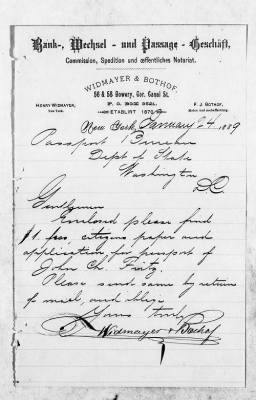 Bank-, Wechsel - und Passage - Geschäft,
Commission, Spedition und œffentliches Notariat.
WIDMAYER & BOTHOF,
56 & 58 Bowery, Cor. Canal St.
P. O. BOX 3521.
ETABLIRT 1870
HENRY WIDMAYER,
New York.
F. J. BOTHOF,
New York, January 24, 1889
Passport Bureau
Dept of State
Washington
D.C.
Gentlemen
Enclosed please find
$1. fees, citizens paper and
application for passport of
John Ch. Fritz.
Please send same by return
of mail, and oblige
Yours truly
Widmayer & Bothof